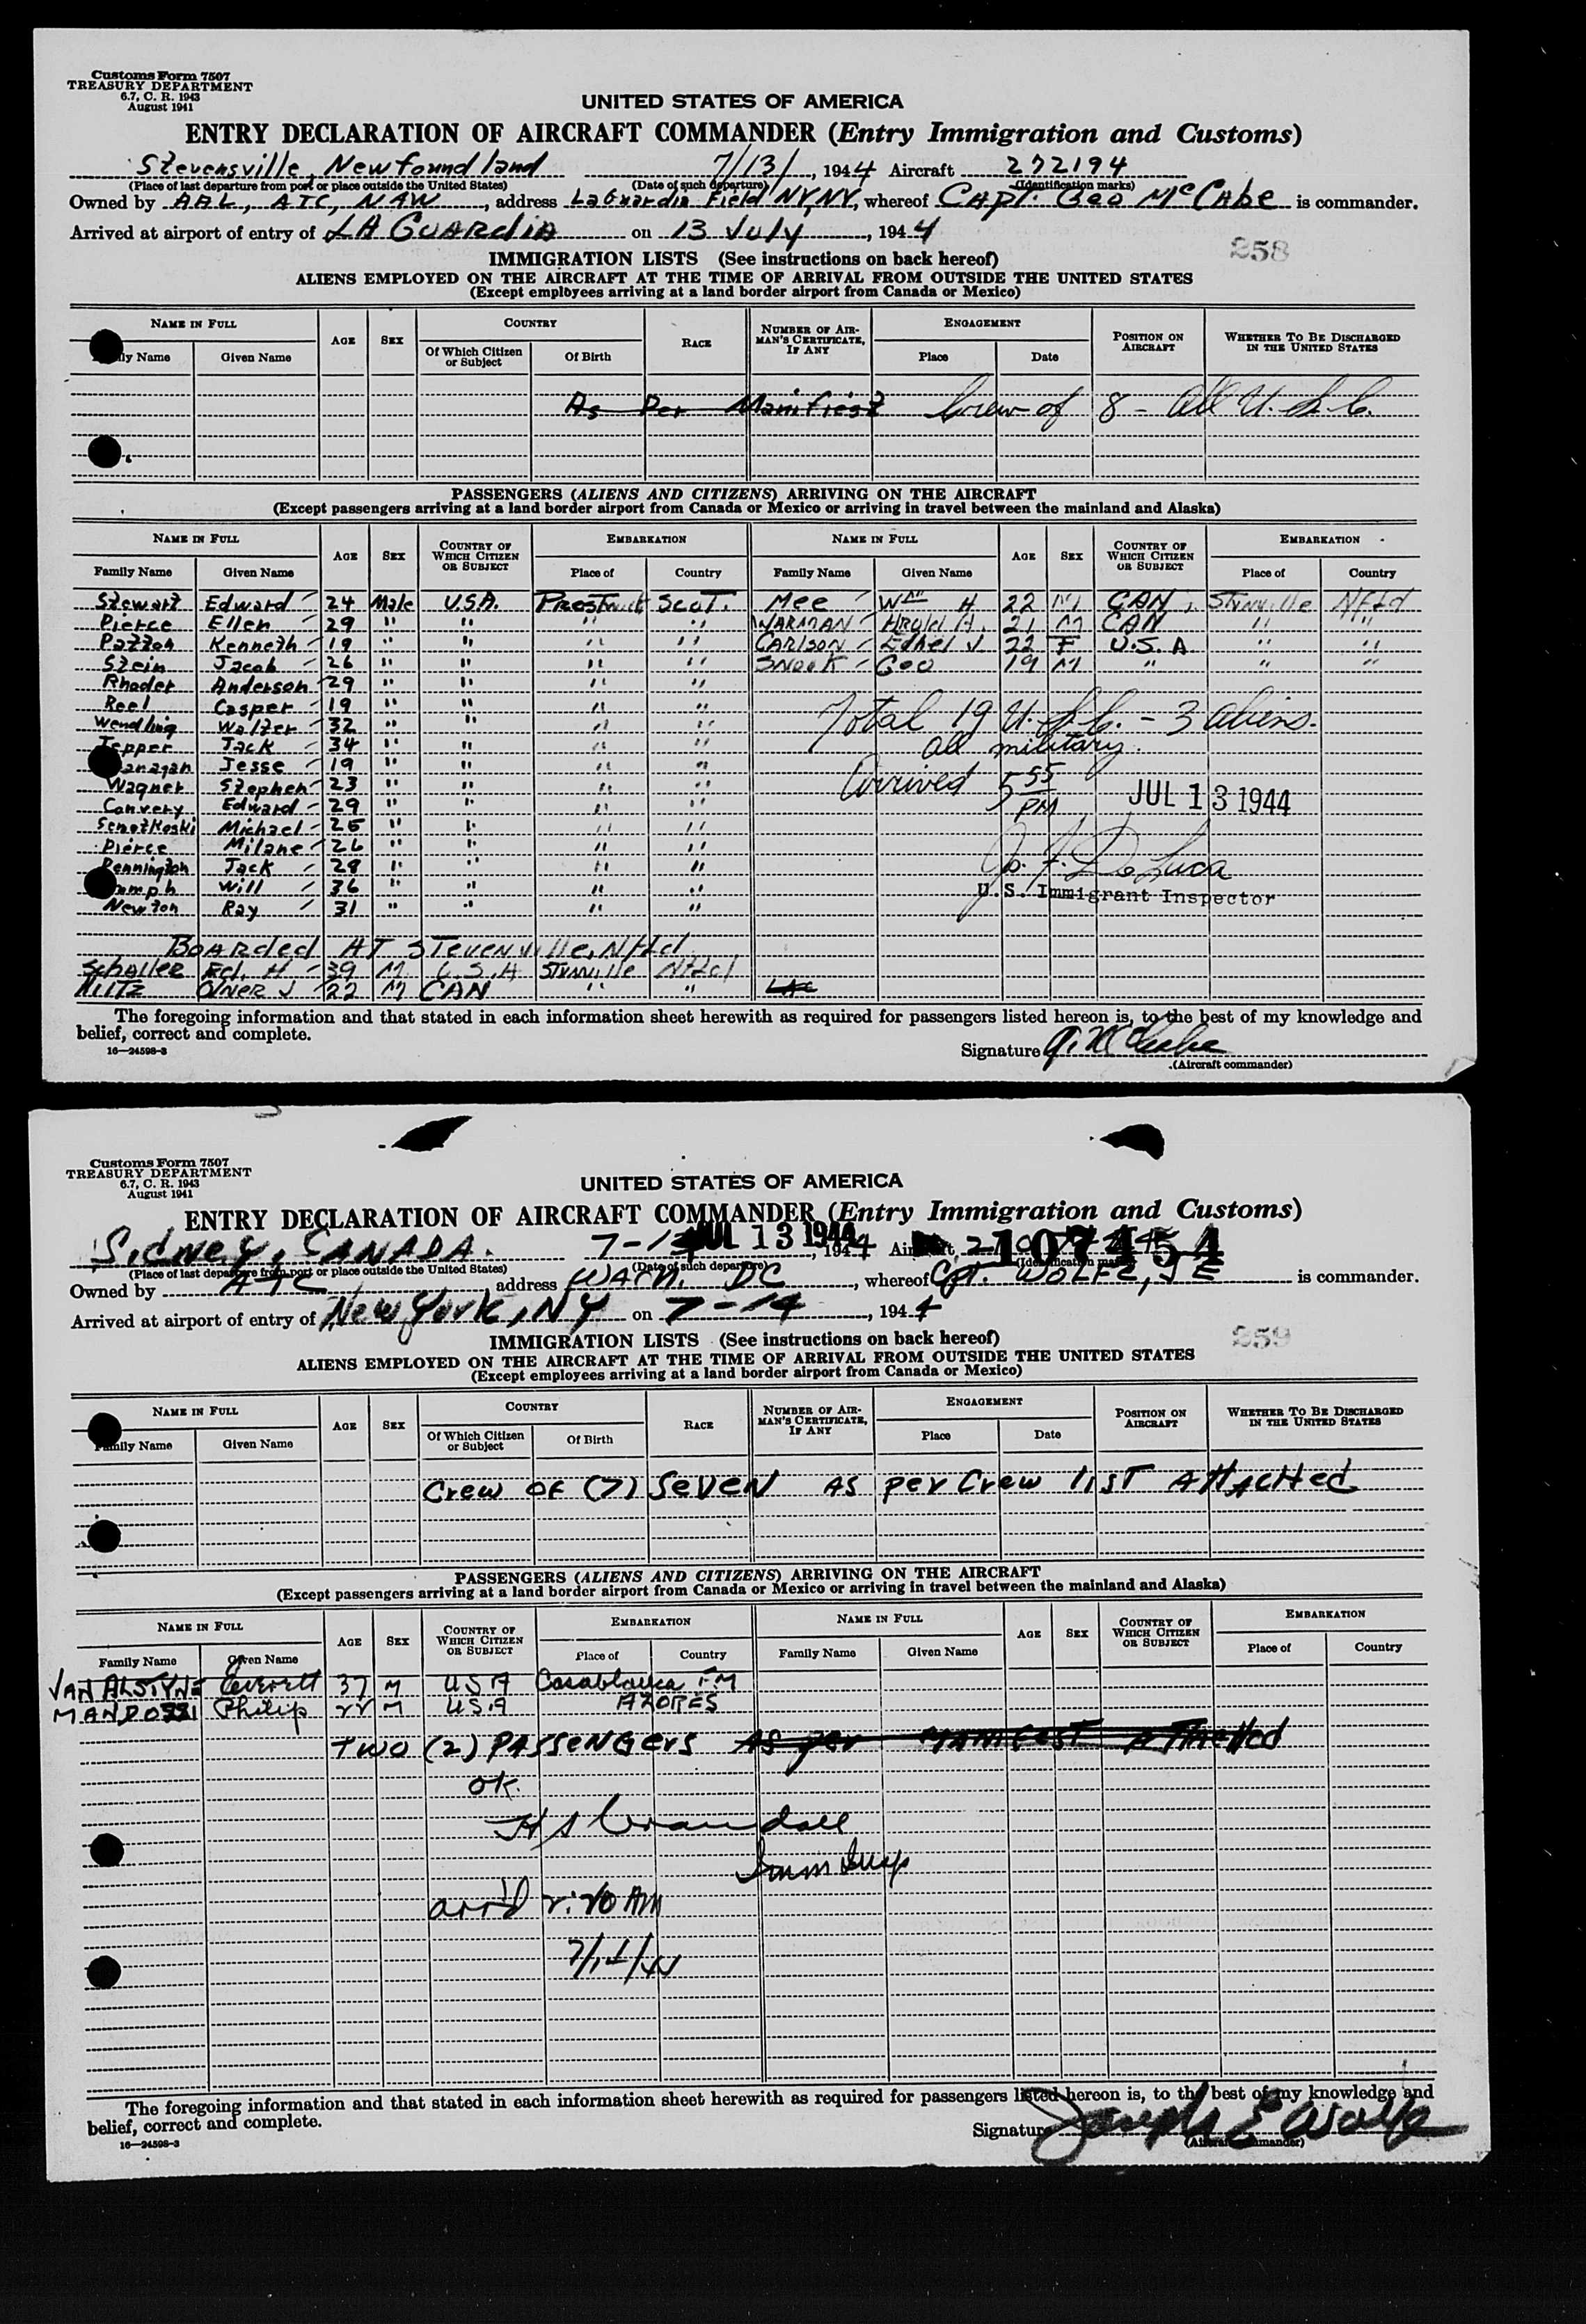 Customs Form 7507
TREASURY DEPARTMENT
6.7, C. R. 1943
August 1941
UNITED STATES OF AMERICA
ENTRY DECLARATION OF AIRCRAFT COMMANDER (Entry Immigration and Customs)
Stevensville, Newfoundland 7/13/, 1944 Aircraft 272194
(Place of last departure from port or place outside the United States) (Date of such departure) (Identification marks)
Owned by AAL, ATC, NAW, address LaGuardia Field NY, NY, whereof CAPT. Geo McCabe is commander.
Arrived at airport of entry of LA GUARDIA on 13 July, 1944
258
IMMIGRATION LISTS (See instructions on back hereof)
ALIENS EMPLOYED ON THE AIRCRAFT AT THE TIME OF ARRIVAL FROM OUTSIDE THE UNITED STATES
(Except employees arriving at a land border airport from Canada or Mexico)
NAME IN FULL AGE SEX COUNTRY RACE NUMBER OF AIRMAN'S CERTIFICATE, IF ANY ENGAGEMENT POSITION ON AIRCRAFT WHETHER TO BE DISCHARGED IN THE UNITED STATES
ly Name Given Name Of Which Citizen or Subject Of Birth Place Date
As Per Manifest Crew of 8 - All U.S.C.
PASSENGERS (ALIENS AND CITIZENS) ARRIVING ON THE AIRCRAFT
(Except passengers arriving at a land border airport from Canada or Mexico or arriving in travel between the mainland and Alaska)
NAME IN FULL AGE SEX COUNTRY OF WHICH CITIZEN OR SUBJECT EMBARKATION NAME IN FULL AGE SEX COUNTRY OF WHICH CITIZEN OR SUBJECT EMBARKATION
Family Name Given Name Place of Country Family Name Given Name Place of Country
Stewart Edward 24 Male U.S.A. Prestwick Scot. Mee Wm H 22 M CAN. Stvnville NFld
Pierce Ellen 29 " " " " WARMAN Hrold H. 21 M CAN " "
Patton Kenneth 19 " " " " CARLSON Ethel J 22 F U.S.A " "
Stein Jacob 26 " " " " SNOOK Geo 19 M " " "
Rhoder Anderson 29 " " " "
Reel Casper 19 " " " "
Wendling Walter 32 " " " " Total 19 U.S.C. - 3 aliens.
Tepper Jack 34 " " " " all military.
anagan Jesse 19 " " " " Arrived 5 55 PM JUL 13 1944
Wagner Stephen 23 " " " "
Convery Edward 29 " " " "
Senotkoski Michael 25 " " " "
Pierce Milane 26 " " " "
Pennington Jack 28 " " " " Jo. F. De Luca
umph Will 36 " " " " U.S. Immigrant Inspector
Newton Ray 31 " " " "
BOARDED AT STEVENVILLE, Nfld
Schaller Ed. H 39 M. U.S.A Stvnville Nfld
22 M CAN " "
The foregoing information and that stated in each information sheet herewith as required for passengers listed hereon is, to the best of my knowledge and
belief, correct and complete.
16—24598-3
Signature G. McCabe
(Aircraft commander)
Customs Form 7507
TREASURY DEPARTMENT
6.7, C. R. 1943
August 1941
UNITED STATES OF AMERICA
ENTRY DECLARATION OF AIRCRAFT COMMANDER (Entry Immigration and Customs)
Sidney, CANADA. 7-13 JUL 13 1944, 1944 Aircraft 107454
(Place of last departure from port or place outside the United States) (Date of such departure) (Identification marks)
Owned by ATC address WASH. DC, whereof Cpt. WOLFE, J E is commander.
Arrived at airport of entry of New York, NY on 7-14, 1944
259
IMMIGRATION LISTS (See instructions on back hereof)
ALIENS EMPLOYED ON THE AIRCRAFT AT THE TIME OF ARRIVAL FROM OUTSIDE THE UNITED STATES
(Except employees arriving at a land border airport from Canada or Mexico)
NAME IN FULL AGE SEX COUNTRY RACE NUMBER OF AIRMAN'S CERTIFICATE, IF ANY ENGAGEMENT POSITION ON AIRCRAFT WHETHER TO BE DISCHARGED IN THE UNITED STATES
Family Name Given Name Of Which Citizen or Subject Of Birth Place Date
Crew OF (7) SEVEN AS per Crew list AttACHed
PASSENGERS (ALIENS AND CITIZENS) ARRIVING ON THE AIRCRAFT
(Except passengers arriving at a land border airport from Canada or Mexico or arriving in travel between the mainland and Alaska)
NAME IN FULL AGE SEX COUNTRY OF WHICH CITIZEN OR SUBJECT EMBARKATION NAME IN FULL AGE SEX COUNTRY OF WHICH CITIZEN OR SUBJECT EMBARKATION
Family Name Given Name Place of Country Family Name Given Name Place of Country
VAN ALSTYNE Everett 37 M USA Casablanca FM
MANDOSSI Philip 22 M USA AZORES
TWO (2) PASSENGERS AS per MANIFEST ATTACHed
OK.
H S Crandall
Imm Insp
arr'd 2:20 AM
7/14/44
The foregoing information and that stated in each information sheet herewith as required for passengers listed hereon is, to the best of my knowledge and
belief, correct and complete.
16—24598-3
Signature Joseph E Wolfe
(Aircraft commander)